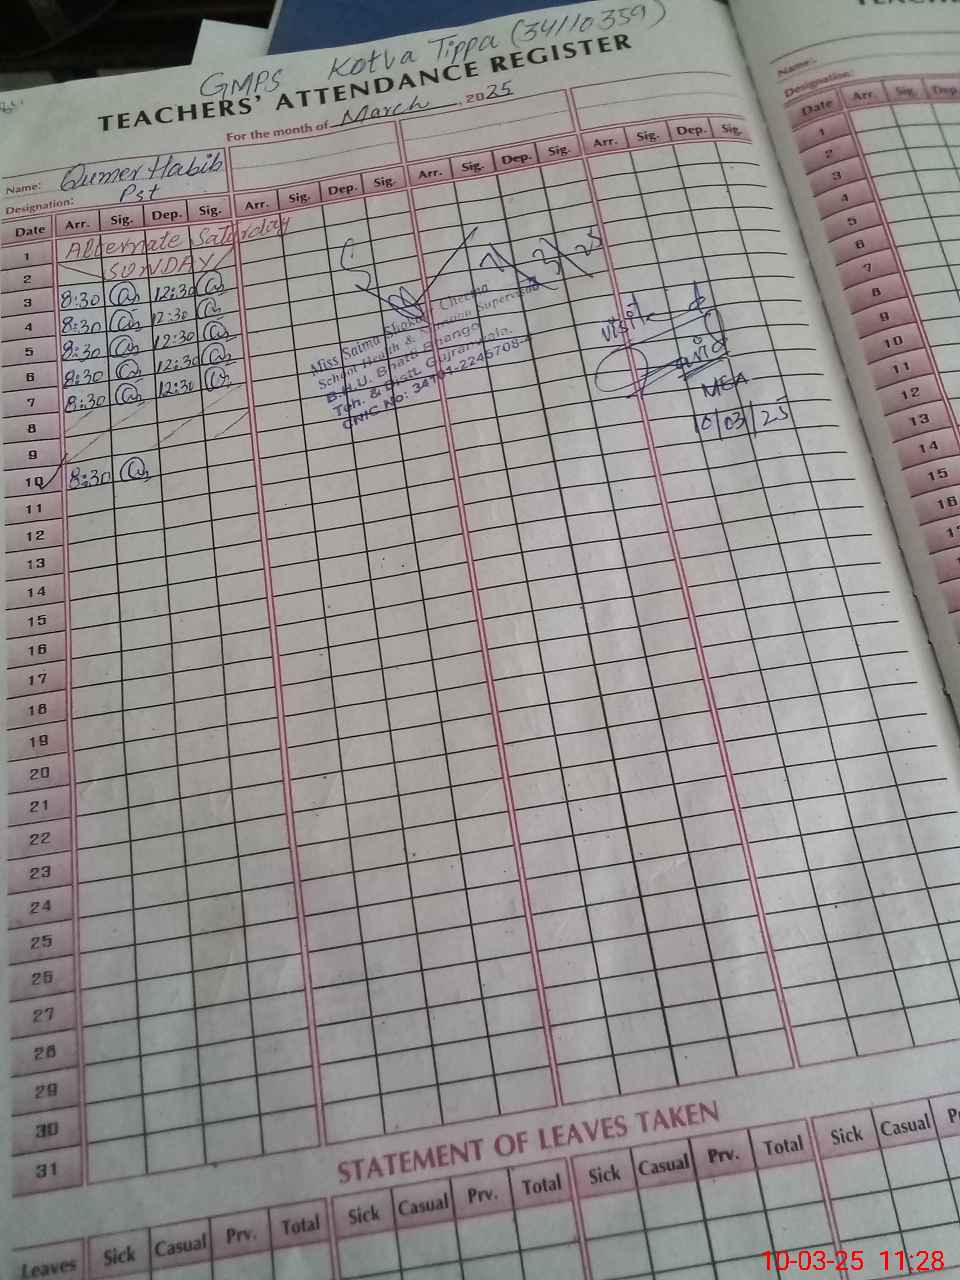 GMPS Kotla Tippa (34110359)
TEACHERS' ATTENDANCE REGISTER
For the month of March, 2025
Name: Qumer Habib
Designation: Pst
Date Arr. Sig. Dep. Sig. Arr. Sig. Dep. Sig. Arr. Sig. Dep. Sig. Arr. Sig. Dep. Sig.
1 Alternate Saturday
2 SUNDAY
3 8:30 12:30
4 8:30 12:30
5 8:30 12:30
6 8:30 12:30
7 8:30 12:30
8
9
10 8:30
11
12
13
14
15
16
17
18
19
20
21
22
23
24
25
26
27
28
29
30
31
7/3/25
Miss Saima Cheema
School Health & Supervisor
B.H.U. Bhango
Teh. & Distt. Gujranwala.
CNIC No: 34101-2245708-
Visit
MEA
10/03/25
STATEMENT OF LEAVES TAKEN
Leaves Sick Casual Prv. Total Sick Casual Prv. Total Sick Casual Prv. Total Sick Casual
Name:
Designation:
Date Arr. Sig. Dep.
1
2
3
4
5
6
7
8
9
10
11
12
13
14
15
16
10-03-25 11:28